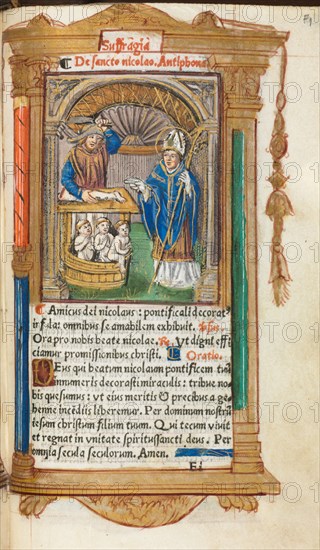 Suffragia
De sancto nicolao. Antiphona
Amicus dei nicolaus : pontificali decorat⁹
ifula: omnibus se amabilem exhibuit.
Ora pro nobis beate nicolae. Ut digni effi
ciamur promissionibus christi. Oratio.
Deus qui beatum nicolaum pontificem tuū
innumeris decorasti miraculis : tribue no-
bis quesumus : ut eius meritis & precibus a ge-
henne incēdiis liberemur. Per dominum nostrū
iesum christum filium tuum. Qui tecum vivit
et regnat in vnitate spiritussancti deus. Per
omnia secula seculorum. Amen.